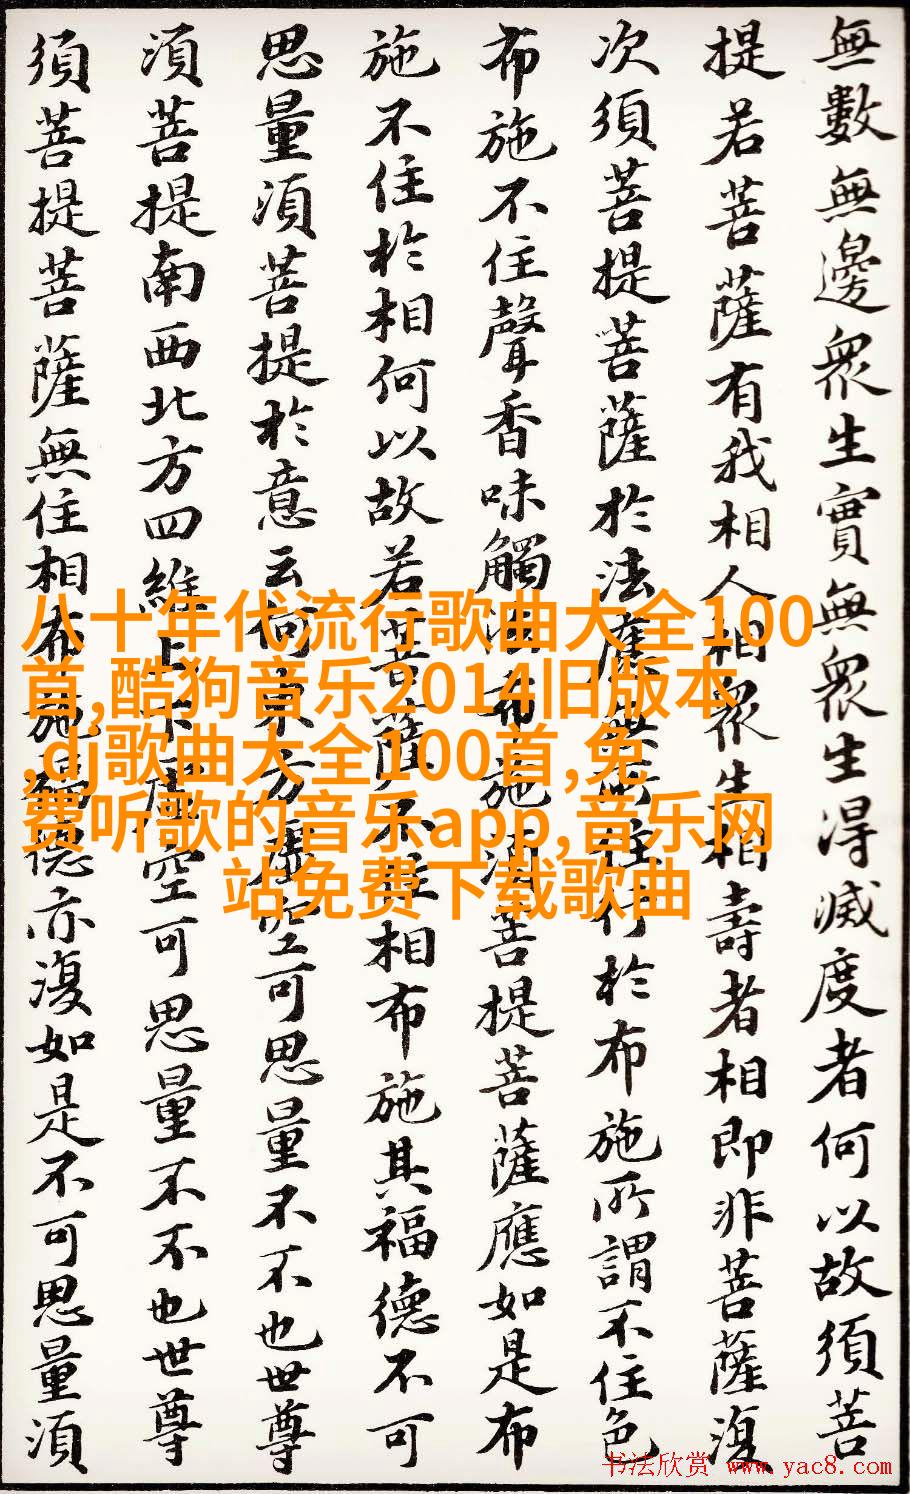 無數無邊眾生實無眾生得滅度者何以故須菩
提若菩薩有我相人相眾生相壽者相即非菩薩復
次須菩提菩薩於法應無所住行於布施所謂不住色
布施不住聲香味觸法布施須菩提菩薩應如是布
施不住於相何以故若菩薩不住相布施其福德不可
思量須菩提於意云何東方虛空可思量不不也世尊
須菩提南西北方四維上下虛空可思量不不也世尊
須菩提菩薩無住相布施福德亦復如是不可思量須
八十年代流行歌曲大全100
首,酷狗音乐2014旧版本
,dj歌曲大全100首,免
费听歌的音乐app,音乐网
站免费下载歌曲
书法欣赏 www.yac8.com